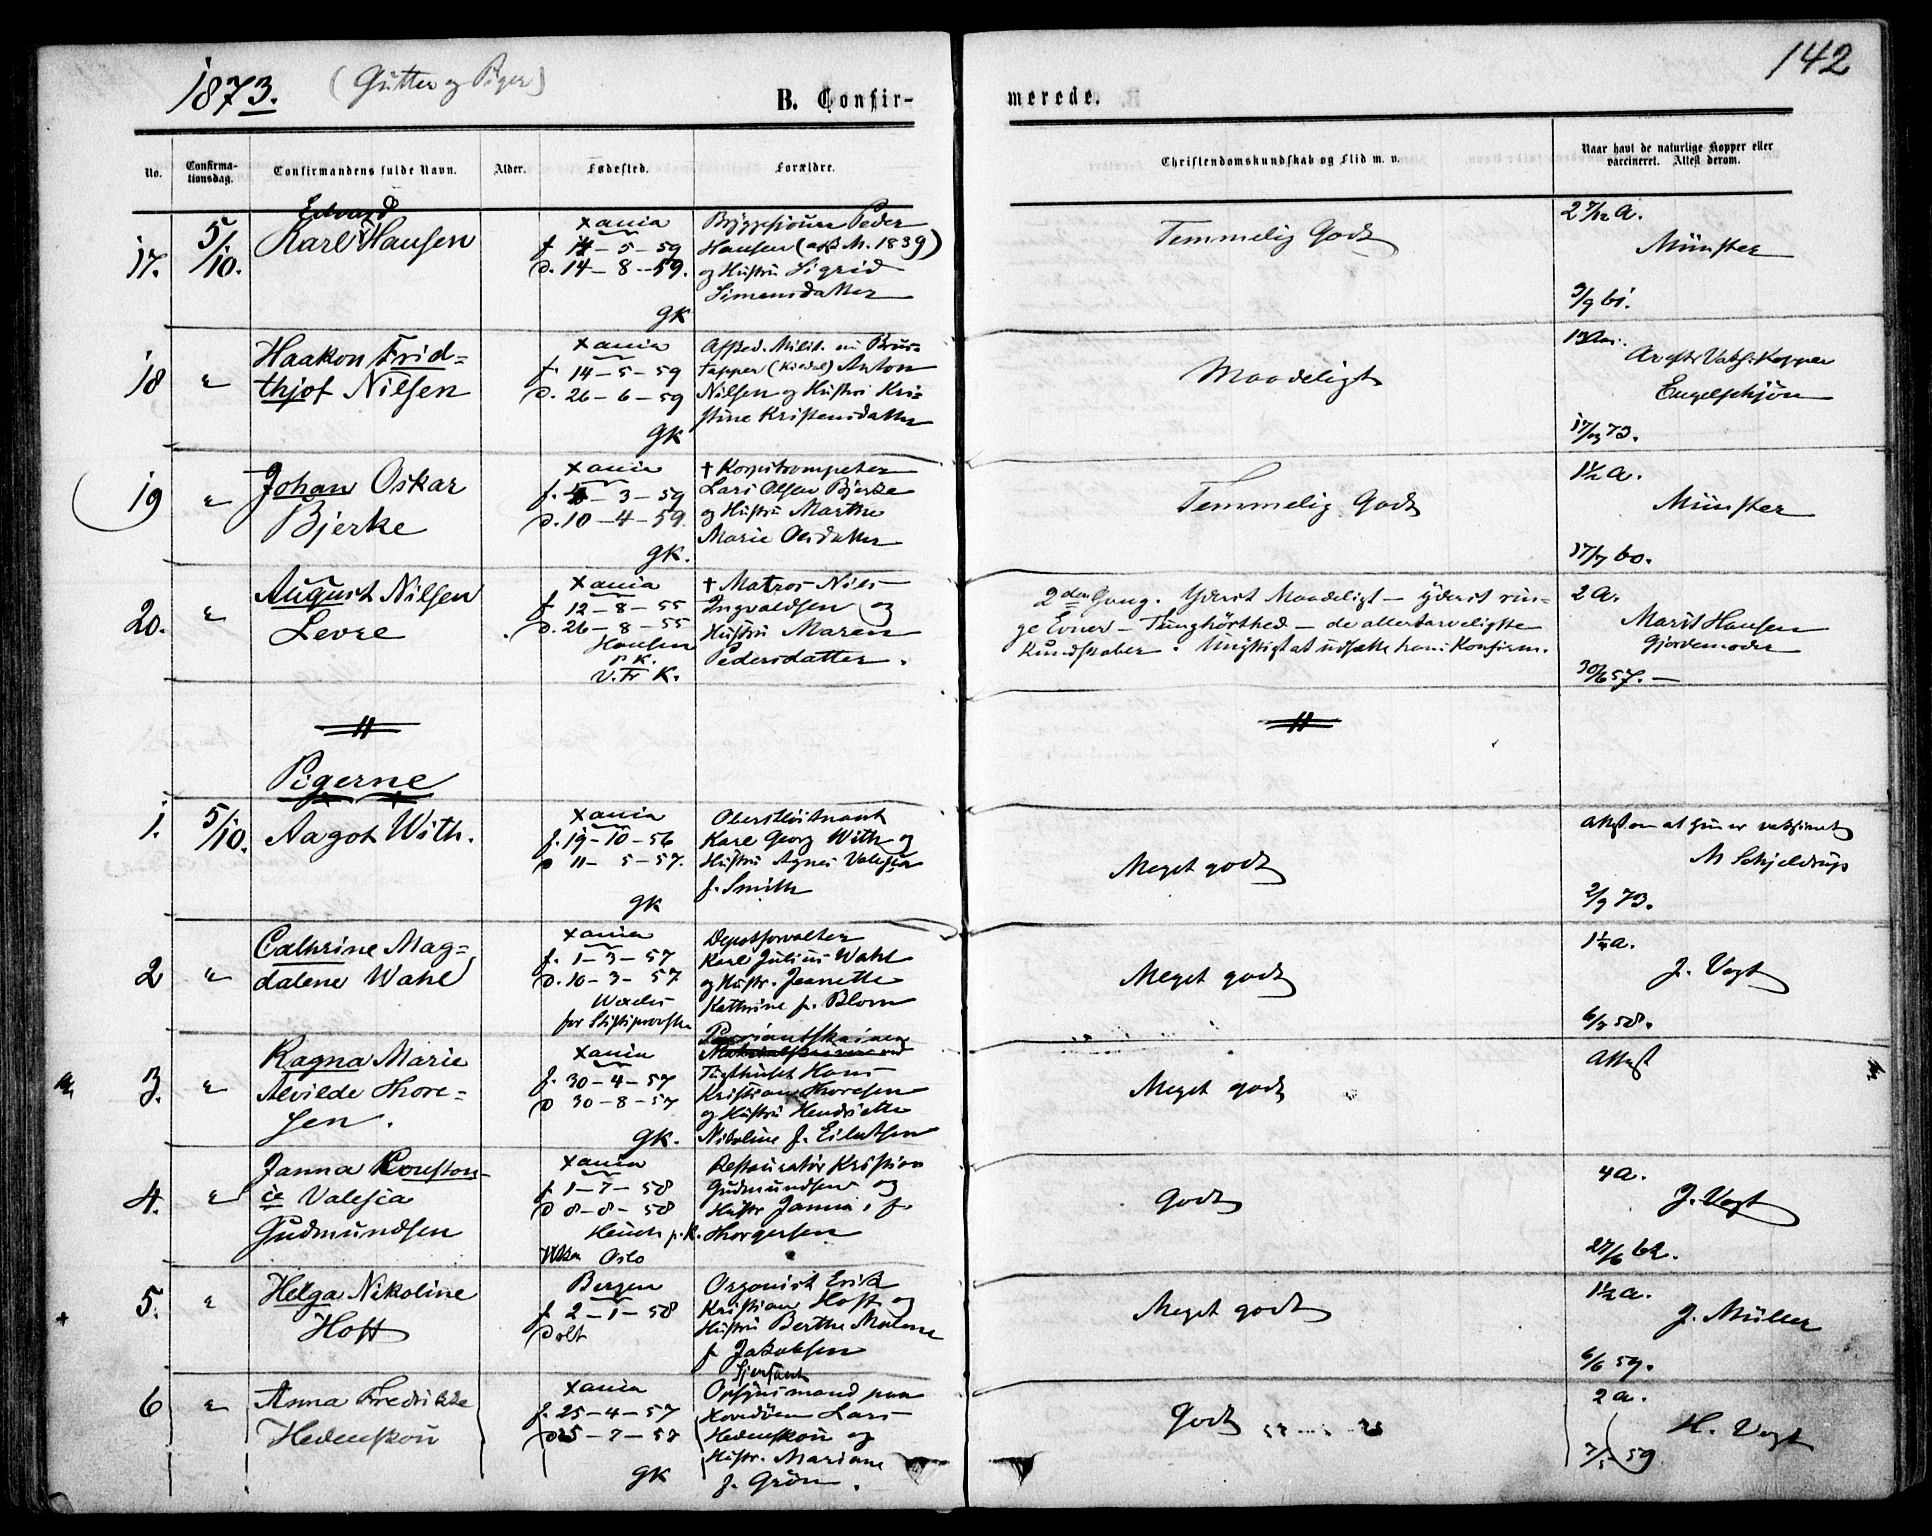 1873.
(Gutter og Piger)
142
B. Confir-
merede.
No.
Confirma-
tionsdag.
Confirmandens fulde Navn.
Alder.
Fødested.
Forældre.
Christendomskundskab og Flid m. v.
Naar havt de naturlige Kopper eller
vaccineret. Attest derom.
17.
5/10.
Edvard
Karl Hansen
Xania
f 14-5-59
d. 14-8-59.
GK
Peder
Hansen (1839)
og Hustru Sigrid
Simensdatter
Temmelig Godt
2 7/12 A.
Münster
3/9 61.
18
"
Haakon Frid-
thjof Nilsen
Xania
f. 14-5-59
d. 26-6-59
GK
Afsked. Milit. nu Brus-
tapper Anton
Nilsen og Hustru Kri-
stine Kristensdatter
Maadeligt
Engelschjøn
73.
19
"
Johan Oskar
Bjerke
Xania
f. 4-3-59
d. 10-4-59.
GK.
+ Korpstrompeter
Lars Olsen Bjerke
og Hustru Marthe
Marie Olsdatter
Temmelig Godt
1½ A.
Münster
17/7 60.
20.
"
August Nilsen
Levre
Xania
f 12-8-55
d. 26-8-55
Hansen
p. K.
V. Fr K.
+ Matros Nils
Ingvaldsen og
Hustru Maren
Pedersdatter.
2den Gang. Yderst Maadeligt - yderst rin-
ge Evner - Tunghørthed - de allertarveligste
Kundskaber. Unyttigt at udsætte hans Konfirm.
2 A.
Marit Hansen
Gjordemoder
30/6 57.-
Pigerne
1.
5/10.
Aagot With.
Xania
f. 19-10-56
d 11-5-57.
GK
Oberstløitnant
Karl Georg With og
Hustru Agnes Valesca
f. Smith
Meget godt
Attest om at hun er vaksineret
M Schjeldrup
2/9 73.
2
"
Cathrine Mag-
dalene Wahl
Xania
f. 1-3-57
d. 10-3-57
for Stiftsprovsten
Depotforvalter
Karl Julius Wahl
og Hustr. Jeanette
Kathrine f. Blom
Meget godt
1¼ A.
J. Vogt
6/7 58.
3.
"
Ragna Marie
Alvilde Thore-
sen.
Xania
f. 30-4-57
d 30-8-57
GK.
Tugthuset Hans
Kristian Thoresen
og Hustru Hendriette
Nikoline f. Eilertsen
Meget godt
Attest
4.
"
Janna Konstan-
ce Valesca
Gudmundsen
Xania
f 1-7-58
d 8-8-58
Heuch p. K.
Oslo
Restauratør Kristian
Gudmundsen og
Hustr Janna, f.
Thorgersen
Godt
4 A.
J. Vogt
27/6 62.
5.
"
Helga Nikoline
Hoff
Bergen
f 2-1-58
døbt
Organist Erik
Kristian Hoff og
Hustru Berthe Malene
f Jakobsen
Meget godt
1½ A.
J. Müller
6/6 59.
6
"
Anna Fredrikke
Hedenskou
Xania
f. 25-4-57
d 5-7-57
GK
Sjersant
Opsynsmand paa
Hovedøen Lars
Hedenskou og
Hustr. Mariane
f. Grøn.
Godt
2 A.
H. Vogt
7/5 59